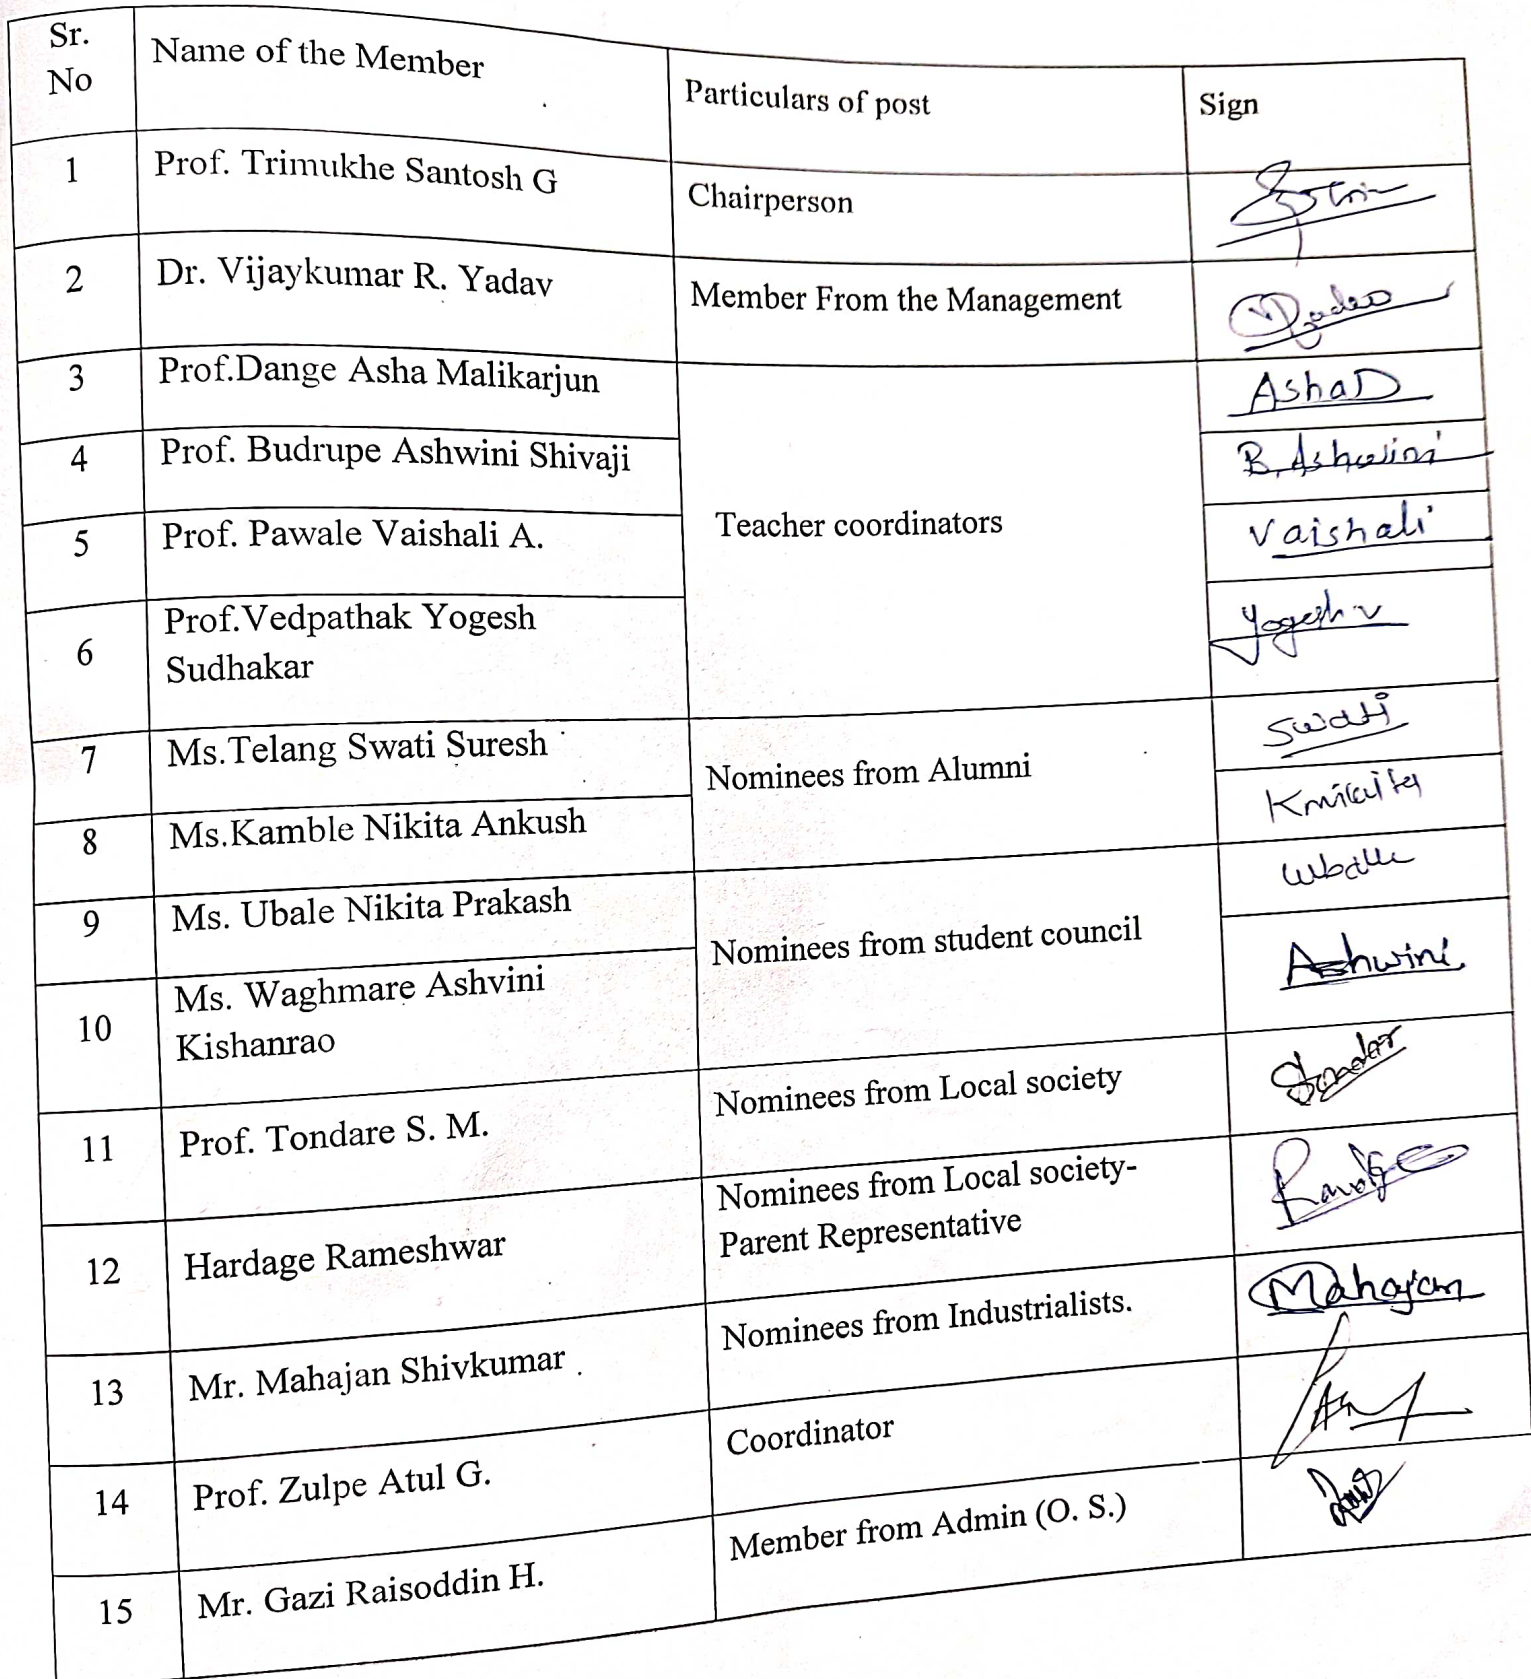 Sr.
No
Name of the Member
Particulars of post
Sign
1
Prof. Trimukhe Santosh G
Chairperson
2
Dr. Vijaykumar R. Yadav
Member From the Management
3
Prof.Dange Asha Malikarjun
Teacher coordinators
AshaD
4
Prof. Budrupe Ashwini Shivaji
B.Ashwini
5
Prof. Pawale Vaishali A.
Vaishali
6
Prof.Vedpathak Yogesh
Sudhakar
Yogesh v
7
Ms.Telang Swati Suresh
Nominees from Alumni
Swati
8
Ms.Kamble Nikita Ankush
Knikita
9
Ms. Ubale Nikita Prakash
Nominees from student council
10
Ms. Waghmare Ashvini
Kishanrao
Ashwini
11
Prof. Tondare S. M.
Nominees from Local society
12
Hardage Rameshwar
Nominees from Local society-
Parent Representative
13
Mr. Mahajan Shivkumar
Nominees from Industrialists.
Mahajan
14
Prof. Zulpe Atul G.
Coordinator
15
Mr. Gazi Raisoddin H.
Member from Admin (O. S.)